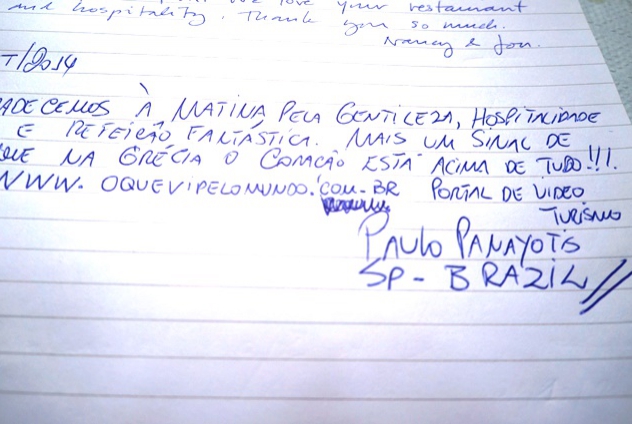 love your restaurant
and hospitality. Thank you so much.
Nancy & Jon.
T/2014
ADECEMOS À MATINA PELA GENTILEZA, HOSPITALIDADE
E REFEIÇÃO FANTÁSTICA. MAIS UM SINAL DE
QUE NA GRÉCIA O CORAÇÃO ESTÁ ACIMA DE TUDO!!!.
WWW.OQUEVIPELOMUNDO.COM.BR PORTAL DE VIDEO
TURISMO
PAULO PANAYOTIS
SP - BRAZIL //